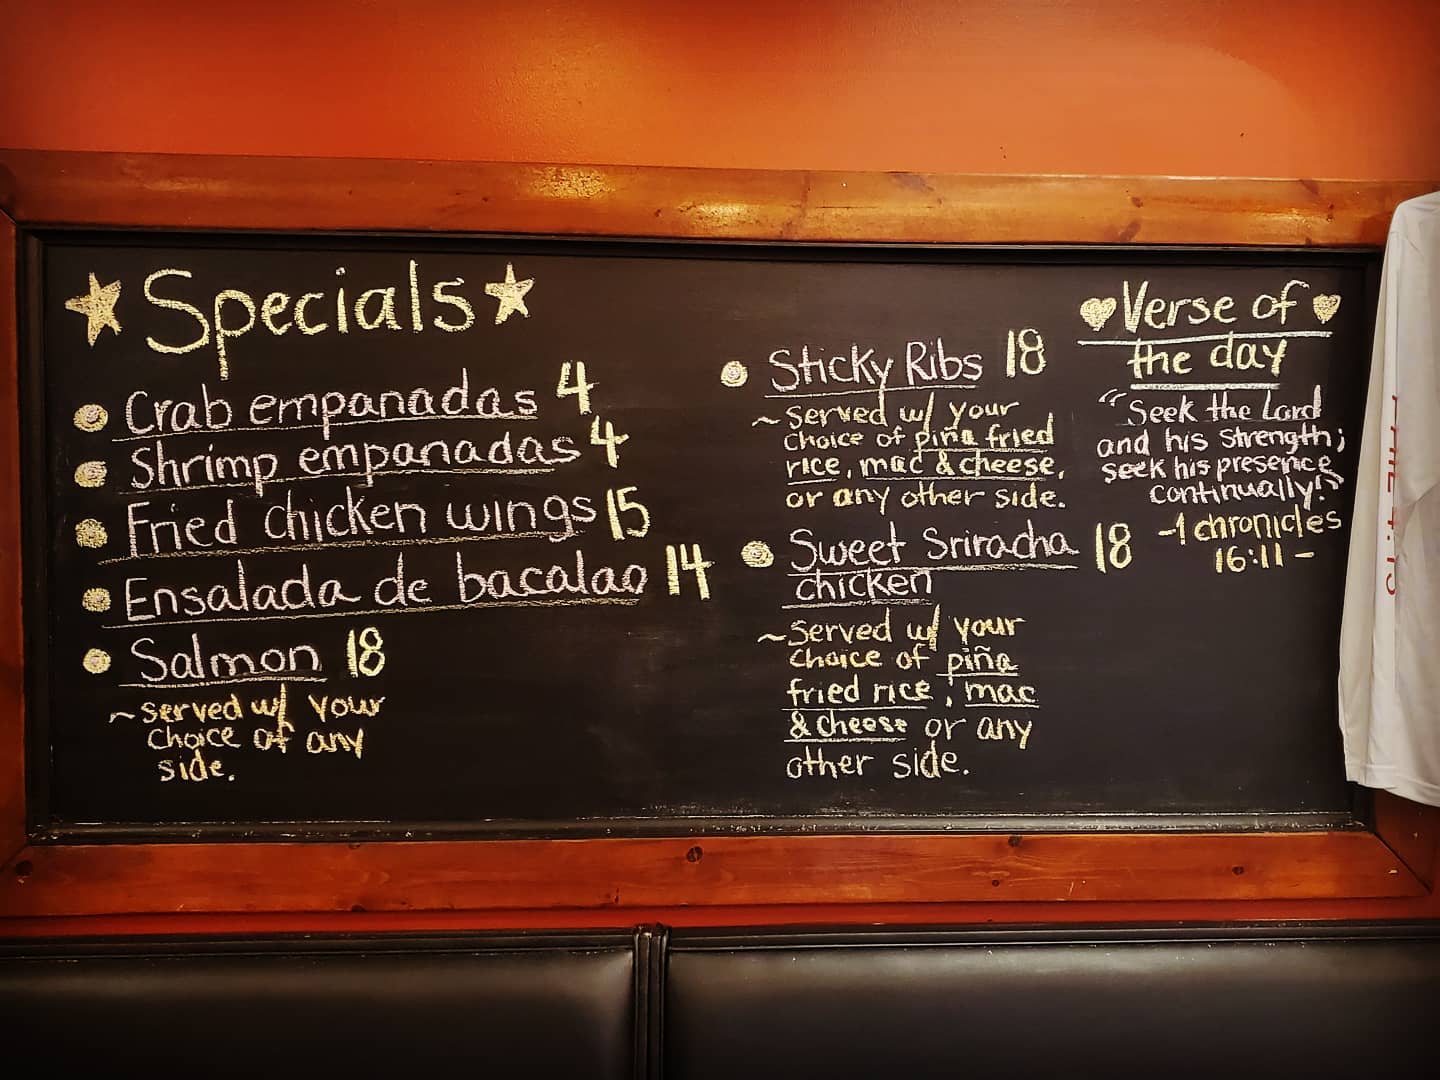 Specials
Crab empanadas 4
Shrimp empanadas 4
Fried chicken wings 15
Ensalada de bacalao 14
Salmon 18
~served w/ your
choice of any
side.
Sticky Ribs 18
~served w/ your
choice of piña fried
rice, mac & cheese,
or any other side.
Sweet Sriracha 18
chicken
~served w/ your
choice of piña
fried rice, mac
& cheese or any
other side.
Verse of
the day
"Seek the Lord
and his strength;
seek his presence
continually!"
-1 chronicles
16:11-
PHIL 4:13